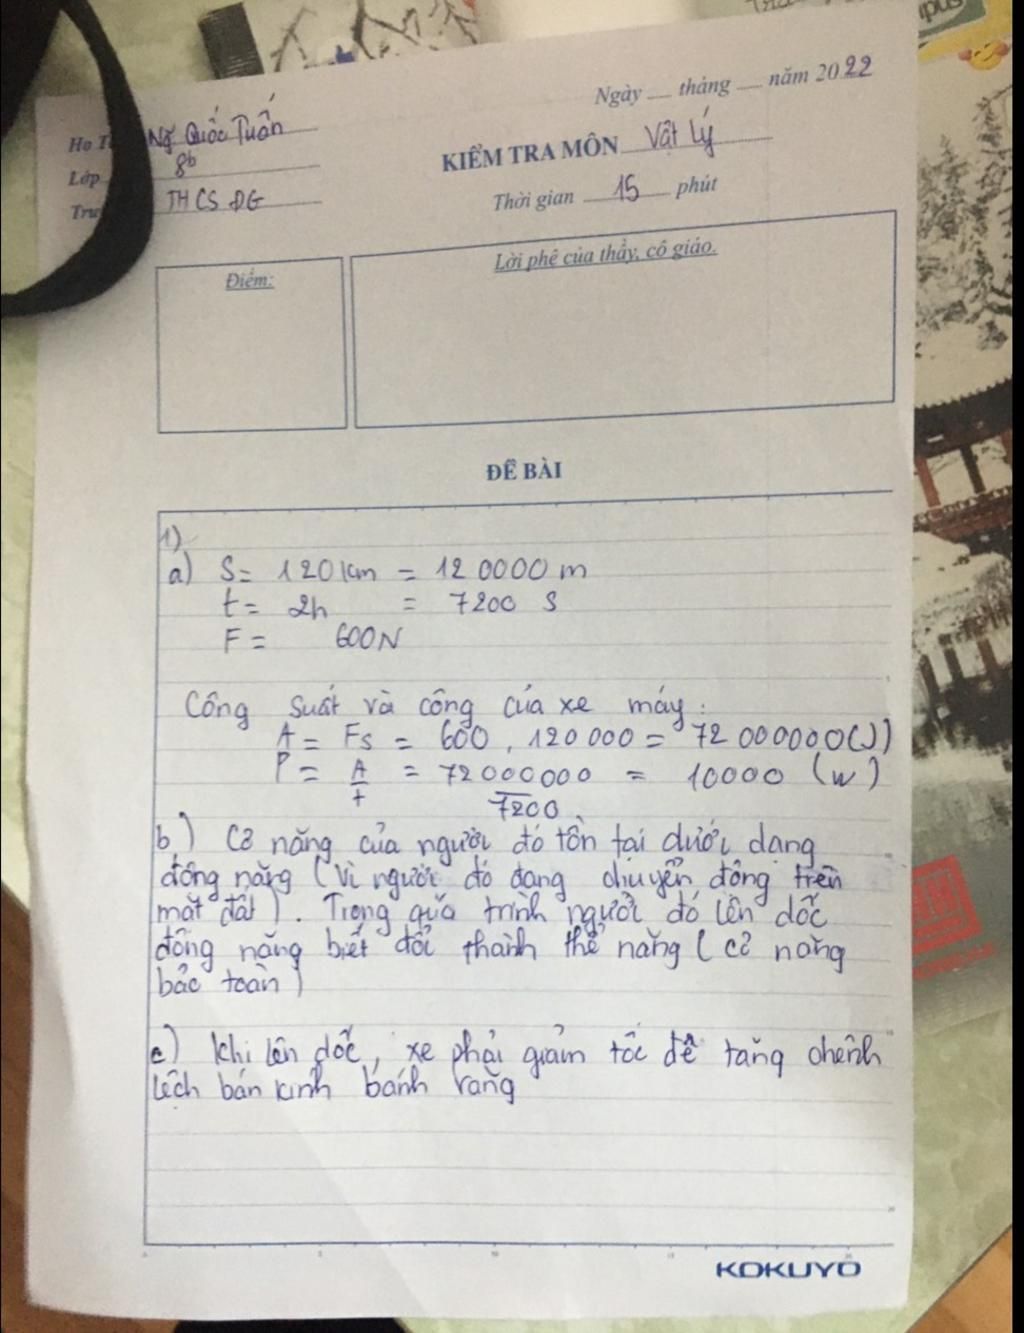 Ngày ___ tháng ___ năm 2022
Họ T Ng Quốc Tuấn
KIỂM TRA MÔN Vật Lý
Lớp 8b
Thời gian 15 phút
Trư THCS ĐG
Điểm:
Lời phê của thầy, cô giáo.
ĐỀ BÀI
1)
a) S = 120km = 120000 m
t = 2h = 7200 s
F = 600N
Công suất và công của xe máy:
A = Fs = 600 . 120 000 = 72 000000 (J)
P = A/t = 72000000/7200 = 10000 (w)
b) Cơ năng của người đó tồn tại dưới dạng
động năng (Vì người đó đang chuyển động trên
mặt đất). Trong quá trình người đó lên dốc
động năng biết đổi thành thế năng (cơ năng
bảo toàn)
c) Khi lên dốc, xe phải giảm tốc để tăng chênh
lệch bán kính bánh răng
KOKUYO